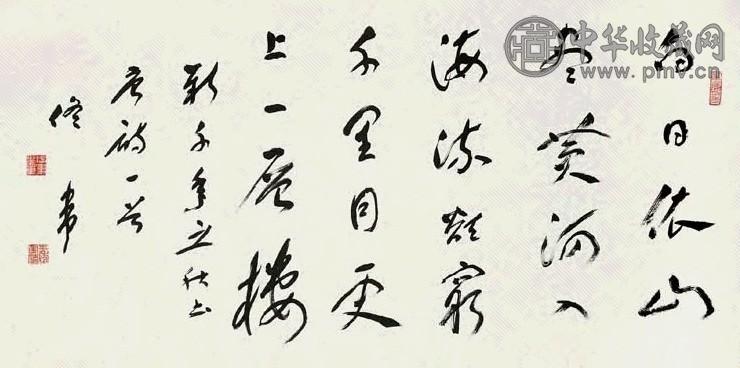 白日依山
尽黄河入
海流欲穷
千里目更
上一层楼
新千年之秋书
唐诗一首
中华收藏网
www.pmv.cn